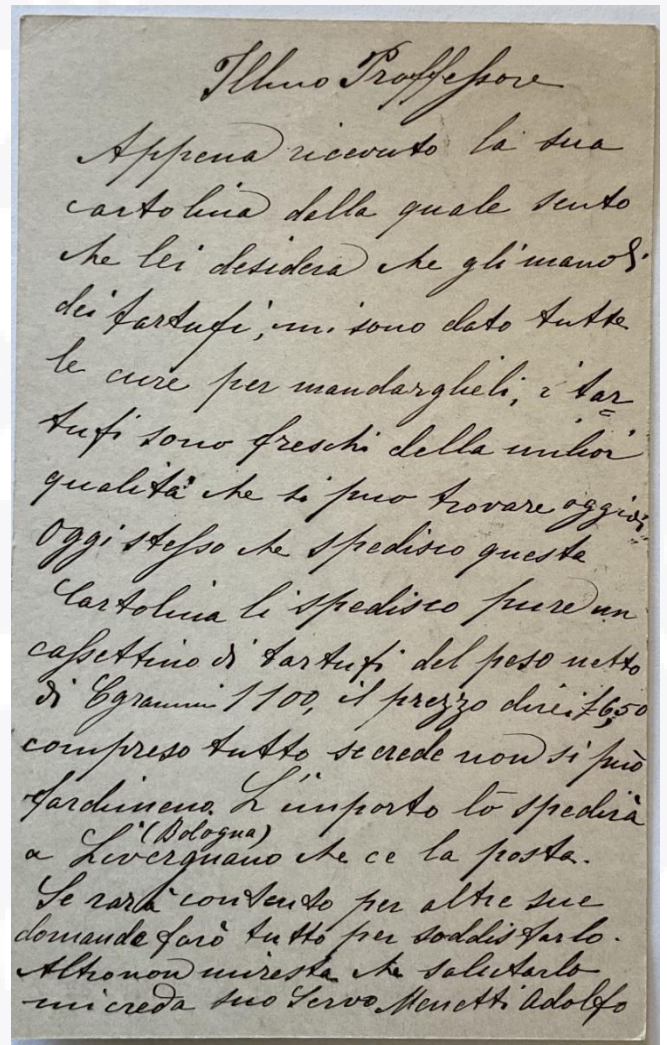 Illmo Proffessore
Appena ricevuto la sua
cartolina della quale sento
che lei desidera che gli mandi
dei tartufi, mi sono dato tutte
le cure per mandarglieli, i tar
tufi sono freschi della milior
qualità che si puo trovare oggidi
Oggi stesso che spedisco questa
Cartolina li spedisco pure un
cassettino di tartufi del peso netto
di Cgrammi 1100, il prezzo direi £6,50
compreso tutto se crede non si può
fardimeno. L'importo lo spedirà
(Bologna)
a Livergnano che ce la posta.
Se sarà contento per altre sue
domande farò tutto per soddisfarlo.
Altro non mi resta che salutarlo
mi creda suo Servo Menetti Adolfo